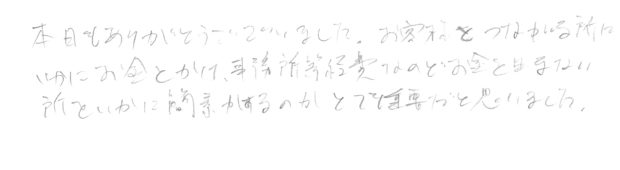 本日もありがとうございました。お客様とつながる所に
いかにお金とかけ、事務所等経費なのどお金と出まない
所といかに簡素かするのかとても重要だと思いました。